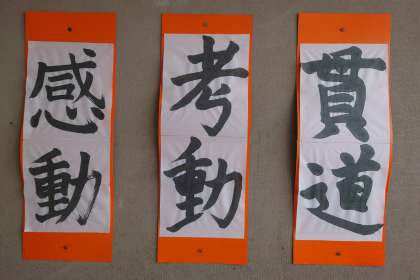 貫道
考動
感動